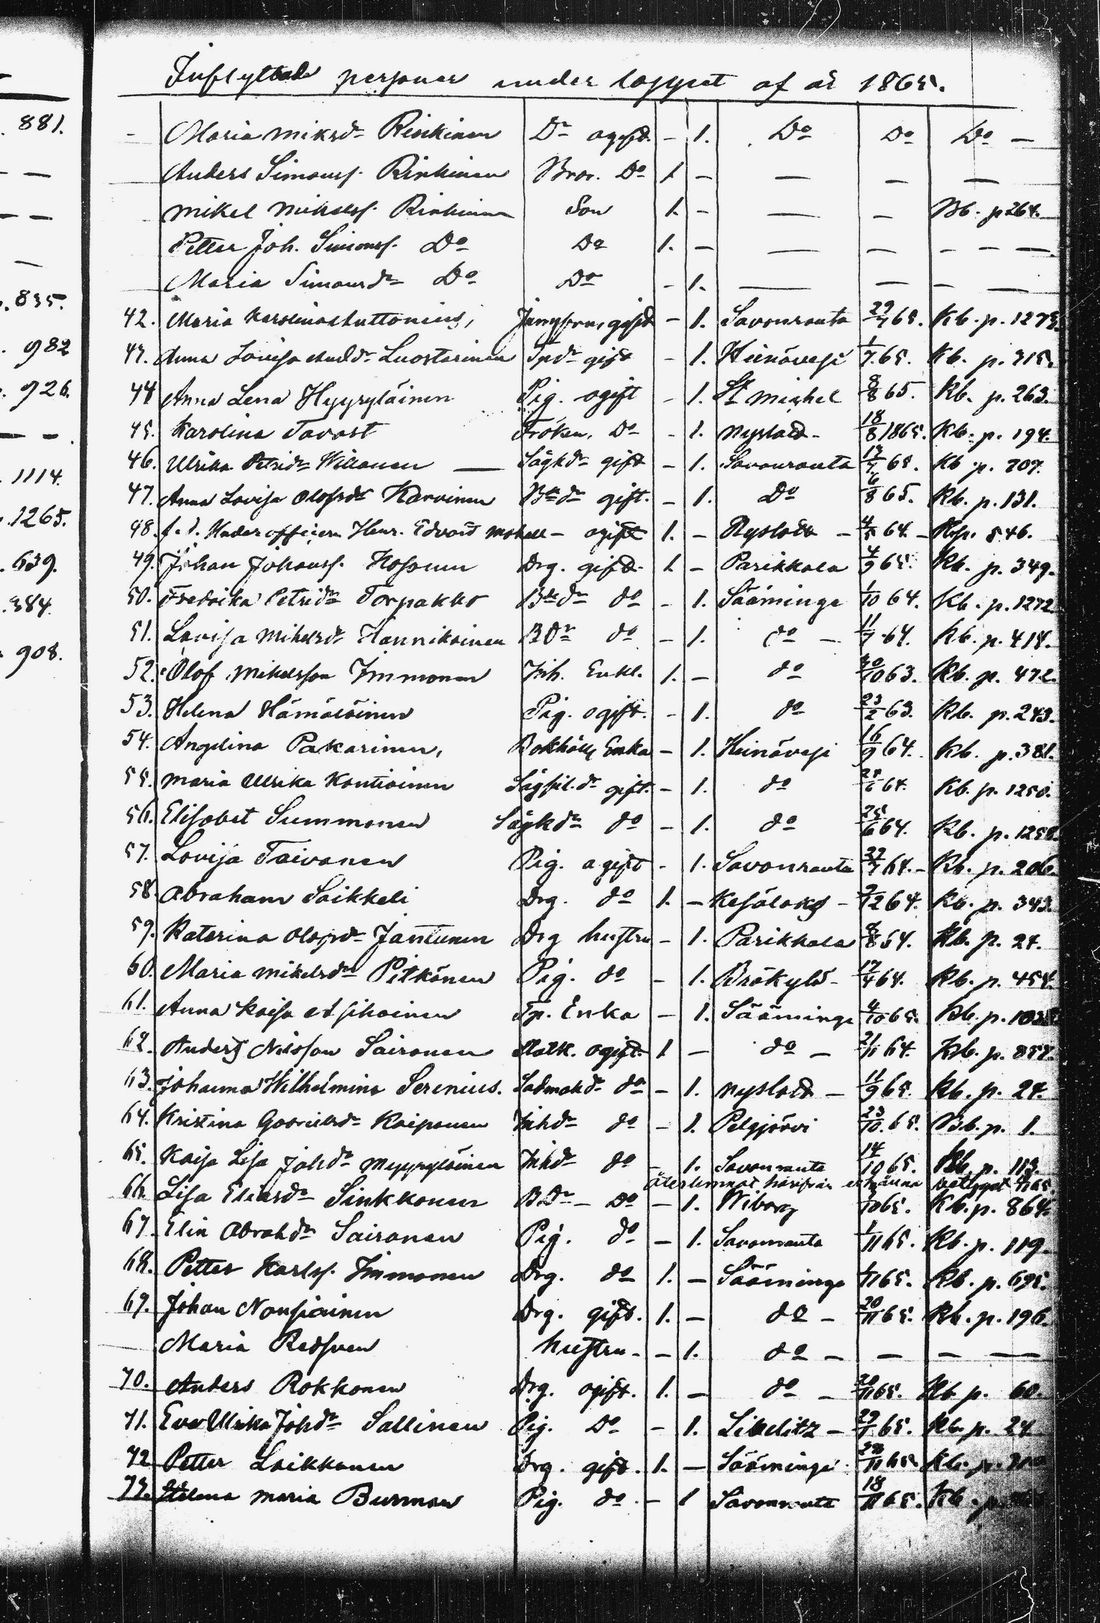 Inflyttade personer under loppet af år 1865.
881. - Maria Miksdr Rinkinen Dr ogift. - 1. Do Do Do -
Anders Simonsf. Rinkinen Bror. Do 1 - — — —
Mikel Mikelsf. Rinkinen Son 1. - — — Kb. p 264.
Petter Joh. Simonsf. Do Do 1. - — — —
Maria Simonsdr Do Do - 1. — — —
835. 42. Maria Karolina Huttonius, Jungfru, gift - 1. Savonranta 29/7 65. Kb. p. 1273
982 43. Anna Lovisa Luostarinen gift - 1. Heinävesi 1/7 65. Kb. p. 315.
926. 44 Anna Lena Hyyryläinen Pig. ogift - 1. St Mickel 8/8 65. Kb. p. 263.
45. Karolina Tavast Fröken, Do - 1. Nyslott - 18/8 1865. Kb. p. 194.
1114. 46. Ulrika Petridr gift - 1. Savonranta 65. Kb p. 707.
1265. 47. Anna Lovisa Olofsdr Karvinen gift. - 1. Do 6/8 65. Kb. p. 131.
48. f. d. Underofficern Henr. Edvard ogift 1. - Nyslott - 64. - Kb. p. 546.
639. 49. Johan Johansf. Hossunen Drg. gift. 1 - Parikkala 4/9 65. Kb. p. 349.
384. 50. Fredrika Petridr Torpakko do - 1. Sääminge 1/10 64. Kb. p. 1272
51. Lovisa Mikelsdr Hannikainen do - 1. do - 11/7 64. Kb. p. 414.
908. 52. Olof Mikelsson Immonen Inh. Enkl. 1. - do 30/10 63. Kb. p. 472.
53. Helena Hämäläinen Pig. ogift. - 1. do 23/2 63. Kb. p. 243.
54. Angelina Pakarinen, Bokhålls Enka - 1. Heinävesi 16/9 64. Kb. p. 381.
55. Maria Ulrika Kontiainen gift. - 1. do 64. Kb. p. 1250.
56. Elisabet Summanen do - 1. do 25/6 64. Kb. p. 125
57. Lovisa Taivanen Pig. ogift - 1. Savonranta 64. - Kb. p. 206
58. Abraham Saikkeli Drg. do 1. - Kesälaks - 64. Kb. p. 343
59. Katarina Olofsdr Jantunen Drg hustru - 1. Parikkala 8/8 54. Kb. p. 24.
60. Maria Mikelsdr Pitkänen Pig. do - 1. Bräkylä - 17/4 64. Kb. p. 454
61. Anna Kaisa Enka - 1. Sääminge 4/10 65. Kb. p.
62. Anders Nilsson Sairanen ogift. 1 - do - 64. Kb. p. 857.
63. Johanna Wilhelmina Serenius. do - 1. Nyslott - 11/9 65. Kb. p. 24.
64. Kristina Gabrielsdr Kaiponen Inhdr do - 1. Pelgjärvi 23/10 65. Kb. p. 1.
65. Kaisa Lisa Johdr Inhdr do - 1. Savonranta 14/10 65. Kb. p. 113.
Återlemnat härifrån
66. Lisa Edvardsdr Sinkkonen Do - 1. Wiborg 65. Kb. p. 864.
67. Elin Abrahdr Sairanen Pig. do - 1. Savonranta 1/11 65. Kb. p. 119
68. Petter Karlsf. Immonen Drg. do 1. - Sääminge 1/11 65. Kb. p. 695.
69. Johan Nousiainen Drg. gift. 1. - do - 20/11 65. Kb. p. 196
Maria Redsven hustru. - 1. do - — — —
70. Anders Rokkonen Drg. ogift. 1. - do - 20/11 65. Kb p. 60.
71. Eva Ulrika Johdr Sallinen Pig. Do - 1. Libelitz - 65. Kb. p. 24
72 Petter Laikkanen Drg. gift. 1. - Sääminge 65. Kb. p.
73. Helena Maria Burman Pig. do. - 1 Savonranta 18/11 65. Kb. p.